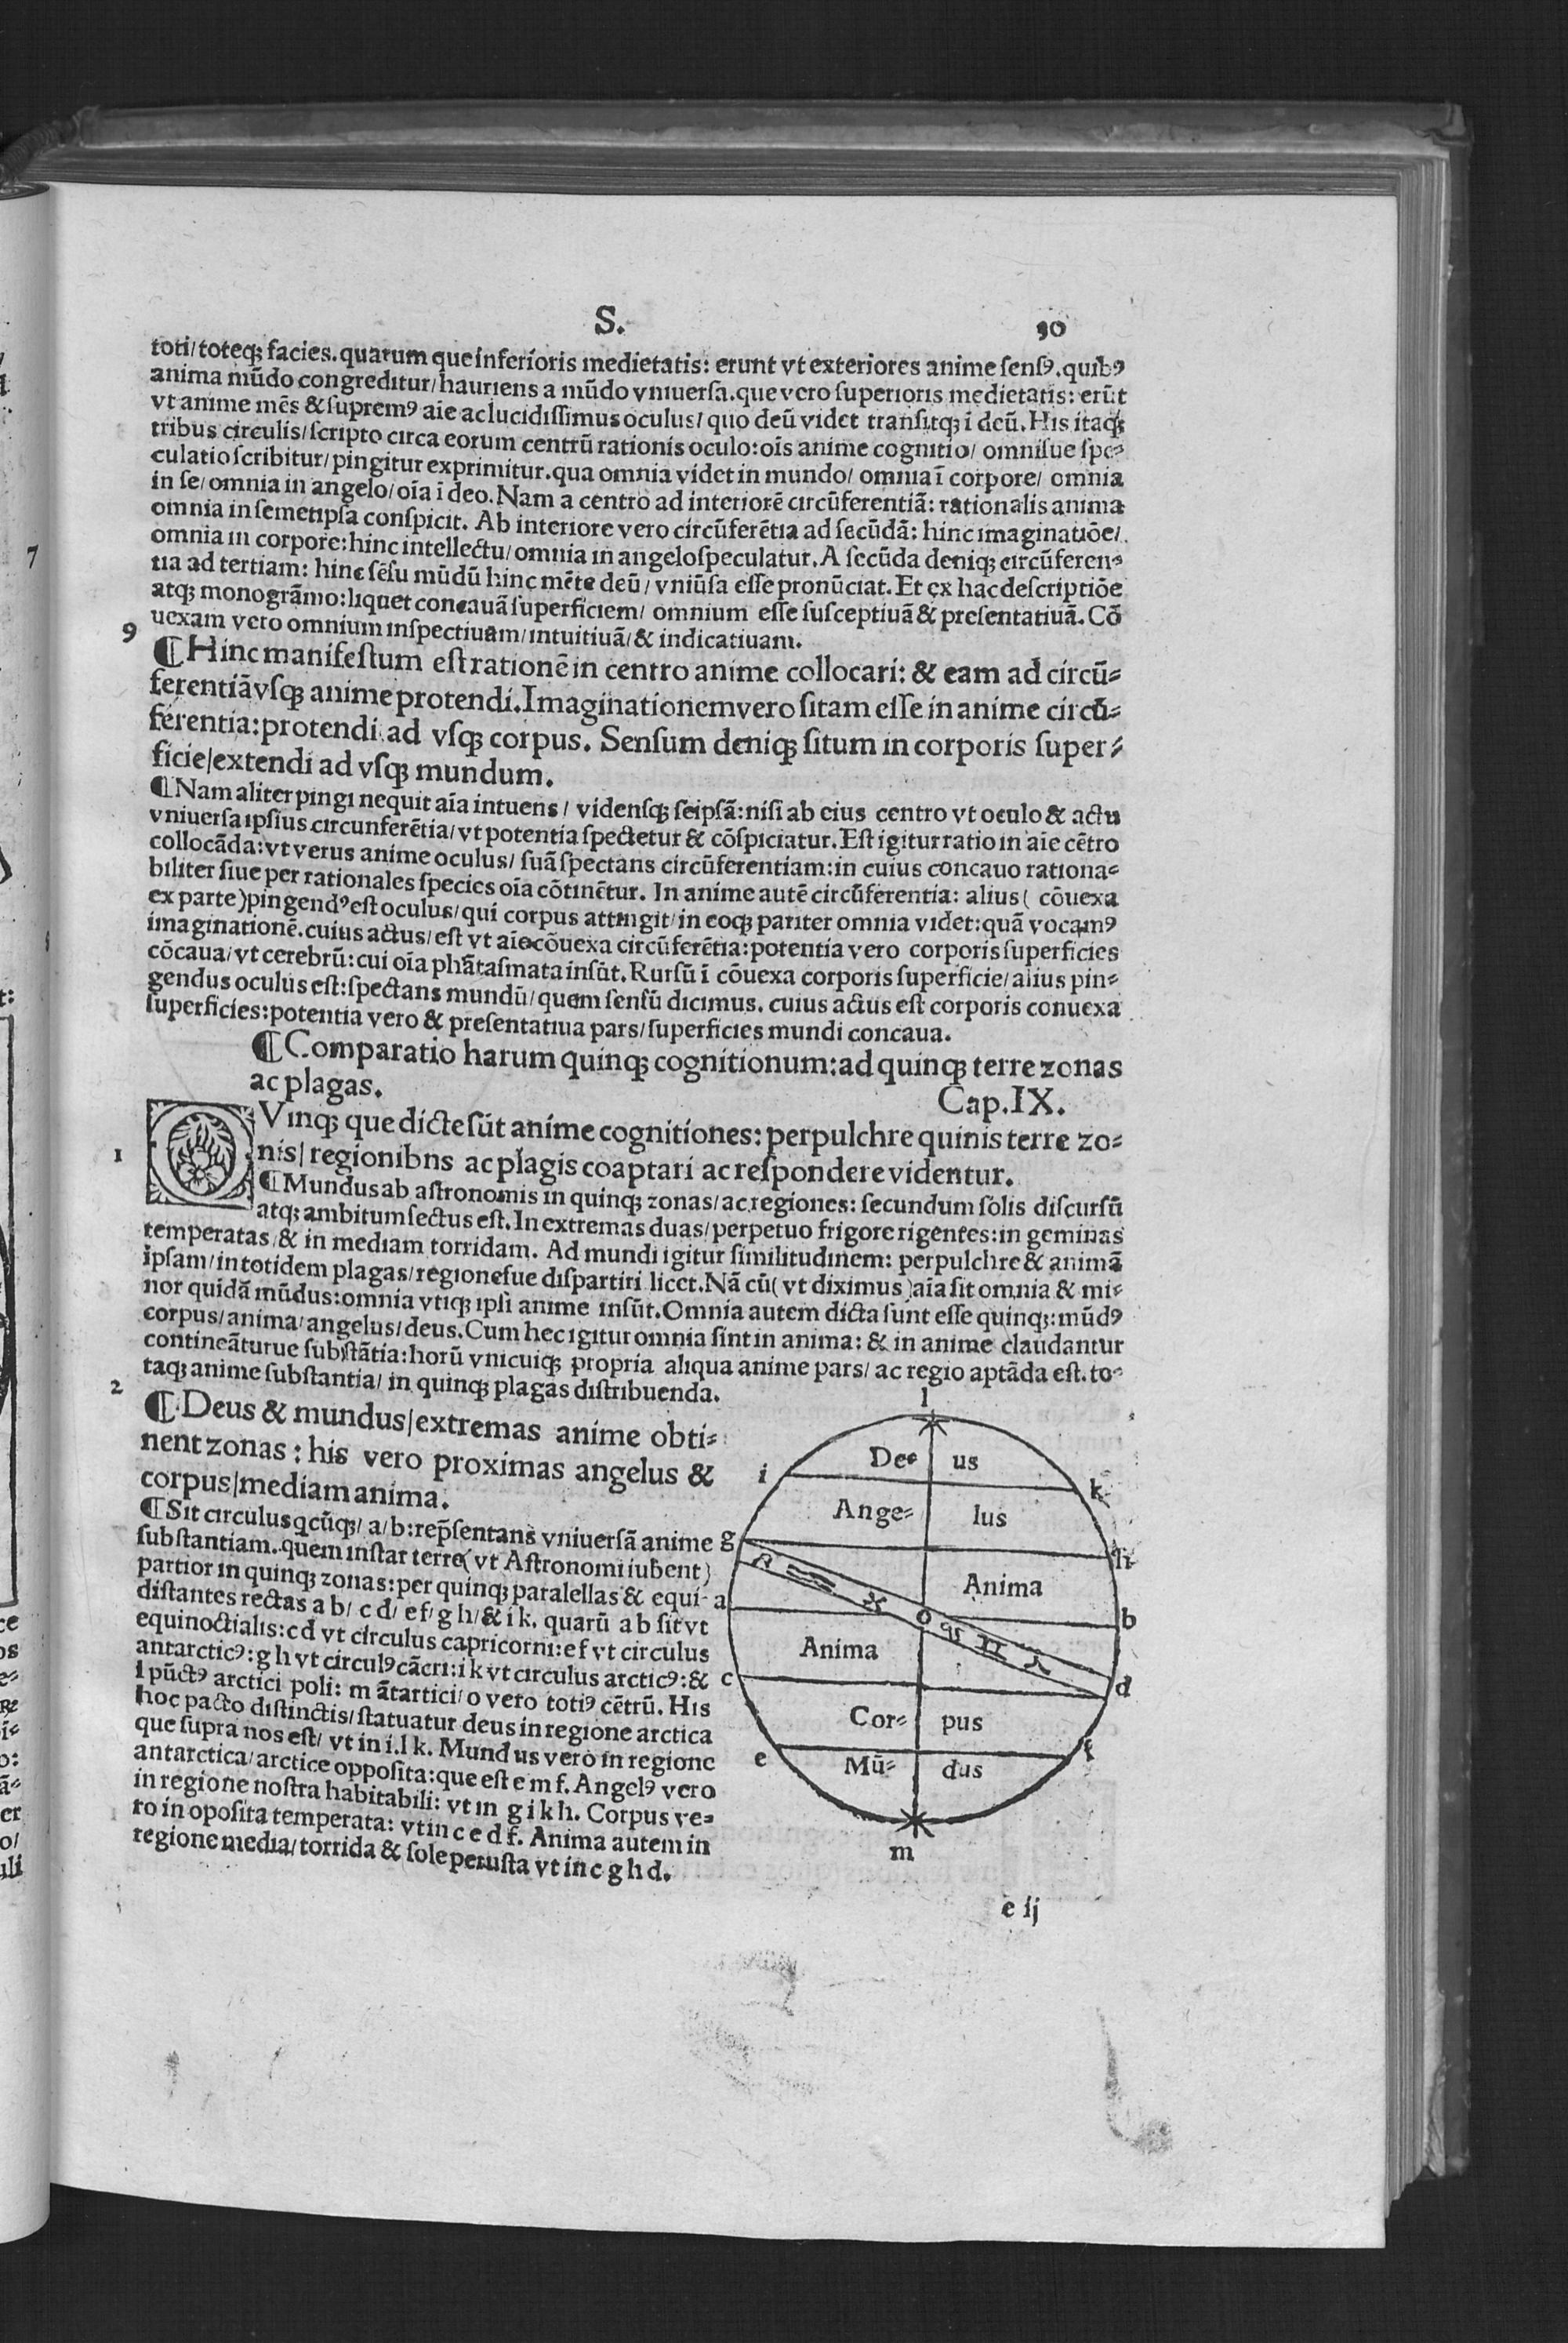 S.
30
toti/toteq; facies.quarum que inferioris medietatis: erunt vt exteriores anime senſꝰ.quibꝰ
anima mũdo congreditur/hauriens a mũdo vniuerſa.que vero ſuperioris medietatis: erũt
vt anime mẽs & ſupremꝰ aie ac lucidiſſimus oculus/ quo deũ videt tranſitq; ĩ deũ. His itaq;
tribus circulis/ſcripto circa eorum centrũ rationis oculo:oĩs anime cognitio/ omniſue ſpe⸗
culatio ſcribitur/pingitur exprimitur.qua omnia videt in mundo/ omnia ĩ corpore/ omnia
in ſe/omnia in angelo/oĩa ĩ deo. Nam a centro ad interiorẽ circũferentiã: rationalis anima
omnia in ſemetipſa conſpicit. Ab interiore vero circũferẽtia ad ſecũdã: hinc imaginatiõe/
omnia in corpore:hinc intellectu/omnia in angelo ſpeculatur. A ſecũda deniq; circũferen⸗
tia ad tertiam: hinc ſẽſu mũdũ hinc mẽte deũ/ vniũſa eſſe pronũciat. Et ex hac deſcriptiõe
atq; monogrãmo:liquet concauã ſuperficiem/ omnium eſſe ſuſceptiuã & preſentatiuã. Cõ
uexam vero omnium inſpectiuam/intuitiuã/& indicatiuam.
9
¶Hinc manifeſtum eſt rationẽ in centro anime collocari: & eam ad circũ⸗
ferentiã vſq; anime protendi.Imaginationem vero ſitam eſſe in anime circũ⸗
ferentia:protendi ad vſq; corpus. Senſum deniq; ſitum in corporis ſuper⸗
ficie/extendi ad vſq; mundum.
¶Nam aliter pingi nequit aĩa intuens/ videnſq; ſeipſã:niſi ab eius centro vt oculo & actu
vniuerſa ipſius circunferẽtia/vt potentia ſpectetur & cõſpiciatur. Eſt igitur ratio in aĩe cẽtro
collocãda:vt verus anime oculus/ ſuã ſpectans circũferentiam:in cuius concauo rationa⸗
biliter ſiue per rationales ſpecies oĩa cõtinẽtur. In anime autẽ circũferentia: alius( cõuexa
ex parte)pingendꝰ eſt oculus/qui corpus attingit/in eoq; pariter omnia videt:quã vocamꝰ
imaginationẽ.cuius actus/eſt vt aĩe cõuexa circũferẽtia:potentia vero corporis ſuperficies
cõcaua/vt cerebrũ:cui oĩa phãtaſmata inſũt. Rurſũ ĩ cõuexa corporis ſuperficie/alius pin⸗
gendus oculus eſt:ſpectans mundũ/quem ſenſũ dicimus. cuius actus eſt corporis conuexa
ſuperficies:potentia vero & preſentatiua pars/ſuperficies mundi concaua.
¶Comparatio harum quinq; cognitionum:ad quinq; terre zonas
ac plagas.
Cap.IX.
QVinq; que dicte ſũt anime cognitiones: perpulchre quinis terre zo⸗
1
nis/regionibns ac plagis coaptari ac reſpondere videntur.
¶Mundus ab aſtronomis in quinq; zonas/ac regiones: ſecundum ſolis diſcurſũ
atq; ambitum ſectus eſt. In extremas duas/perpetuo frigore rigentes:in geminas
temperatas/& in mediam torridam. Ad mundi igitur ſimilitudinem: perpulchre & animã
ipſam/in totidem plagas/regioneſue diſpartiri licet. Nã cũ( vt diximus )aĩa ſit omnia & mi⸗
nor quidã mũdus:omnia vtiq; ipſi anime inſũt. Omnia autem dicta ſunt eſſe quinq;:mũdꝰ
corpus/anima/angelus/deus. Cum hec igitur omnia ſint in anima: & in anime claudantur
contineãturue ſubſtãtia:horũ vnicuiq; propria aliqua anime pars/ ac regio aptãda eſt. to⸗
taq; anime ſubſtantia/ in quinq; plagas diſtribuenda.
2
¶Deus & mundus/extremas anime obti⸗
nent zonas: his vero proximas angelus &
corpus/mediam anima.
¶Sit circulus qcũq;/a/b:rep̃ſentans vniuerſã anime
ſubſtantiam.quem inſtar terre( vt Aſtronomi iubent)
partior in quinq; zonas:per quinq; paralellas & equi⸗
diſtantes rectas a b/ c d/ e f/g h/& i k. quarũ a b ſit vt
equinoctialis:c d vt circulus capricorni:e f vt circulus
antarcticꝰ:g h vt circulꝰ cãcri:i k vt circulus arcticꝰ:&
l pũctꝰ arctici poli: m ãtartici/o vero totiꝰ cẽtrũ. His
hoc pacto diſtinctis/ſtatuatur deus in regione arctica
que ſupra nos eſt/ vt in i.l k. Mundus vero in regione
antarctica/arctice oppoſita:que eſt e m f. Angelꝰ vero
in regione noſtra habitabili: vt in g i k h. Corpus ve⸗
ro in opoſita temperata: vt in c e d f. Anima autem in
regione media/torrida & ſole peruſta vt in c g h d.
l
De⸗ us
i
k
Ange⸗ lus
g
h
Anima
a
o
b
Anima
c
d
Cor⸗ pus
e
f
Mũ⸗ dus
m
e ij